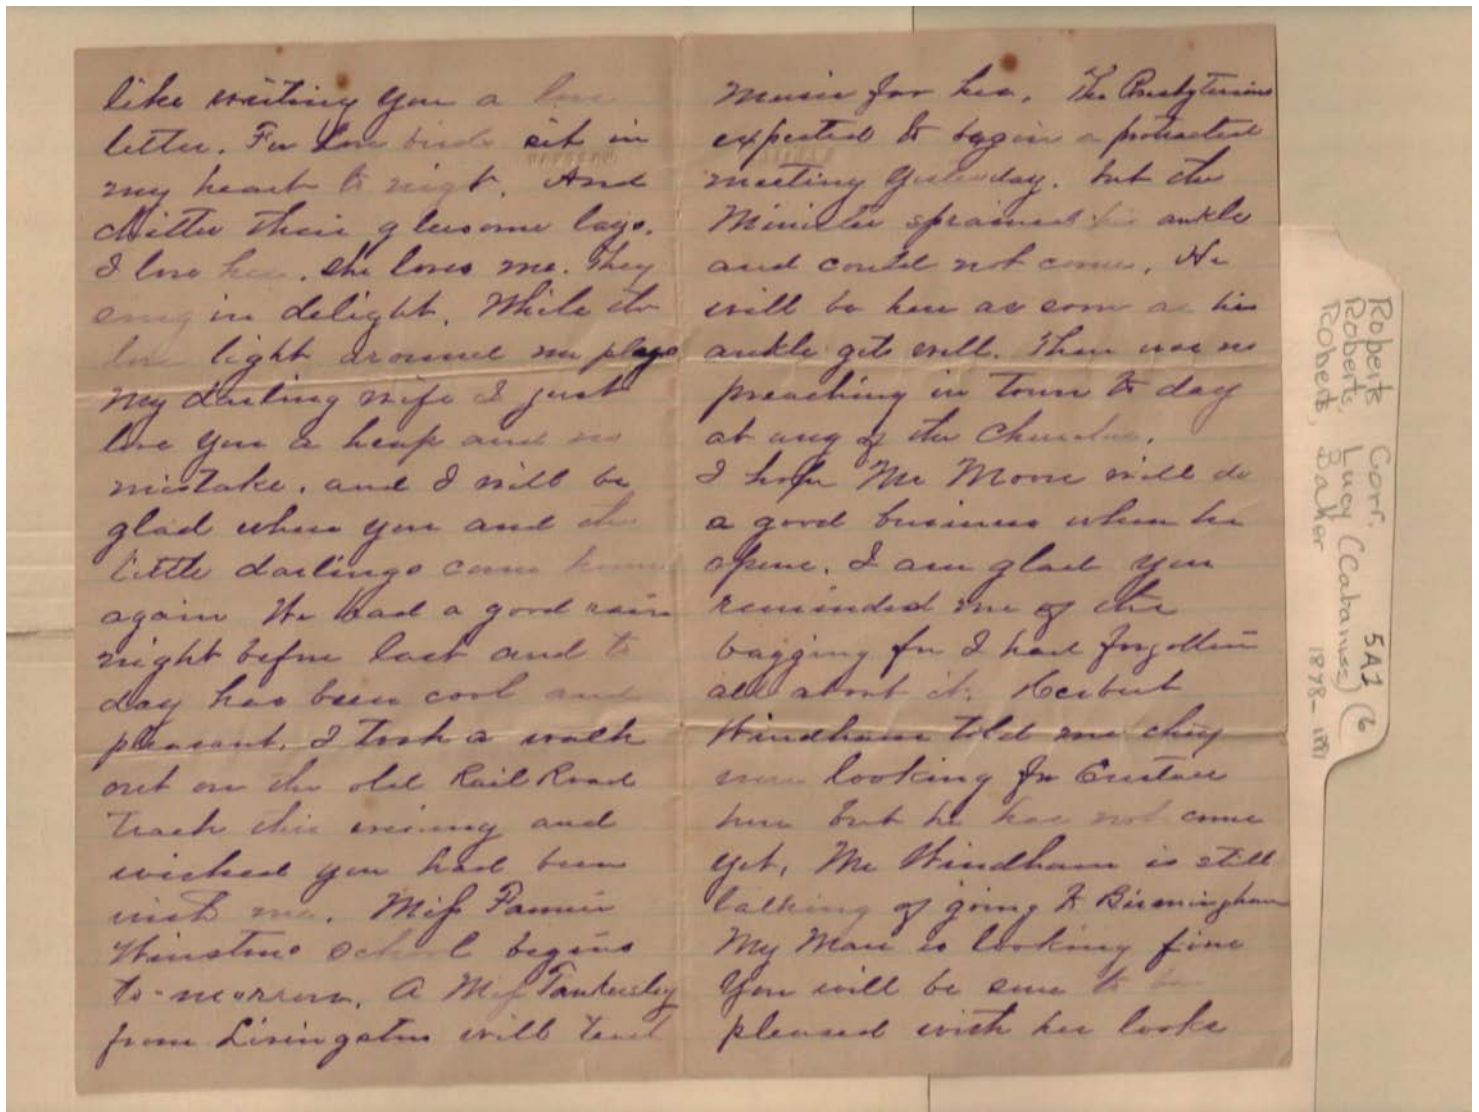 like writing you a love
letter. For Love birds sit in
my heart to night. And
chitter their gleesome lays.
I love her, she loves me. They
sing in delight. While the
love light around me plays
My darling wife I just
love you a heap and no
mistake. and I will be
glad when you and the
little darlings come home
again We had a good rain
night before last and to
day has been cool and
pleasant. I took a walk
out on the old Rail Road
Track this evening and
wished you had been
with me. Miss Fannie
Winstons school begins
to-morrow. A Miss Tankersley
from Livingston will teach
music for her. The Presbyterians
expected to begin a protracted
meeting yesterday. but the
Minister sprained his ankle
and could not come. He
will be here as soon as his
ankle gets well. There was no
preaching in Town to day
at any of the Churches.
I hope Mr Moore will do
a good business when he
opens. I am glad you
reminded me of the
bagging for I had forgotten
all about it. Herbert
Windham told me they
were looking for Eustace
here but he has not come
yet. Mr Windham is still
talking of going to Birmingham
My Mare is looking fine
You will be sure to be
pleased with her looks
Roberts Corr. 5A1 (6
Roberts, Lucy (Cabaniss)
Roberts, Baker 1878-1881